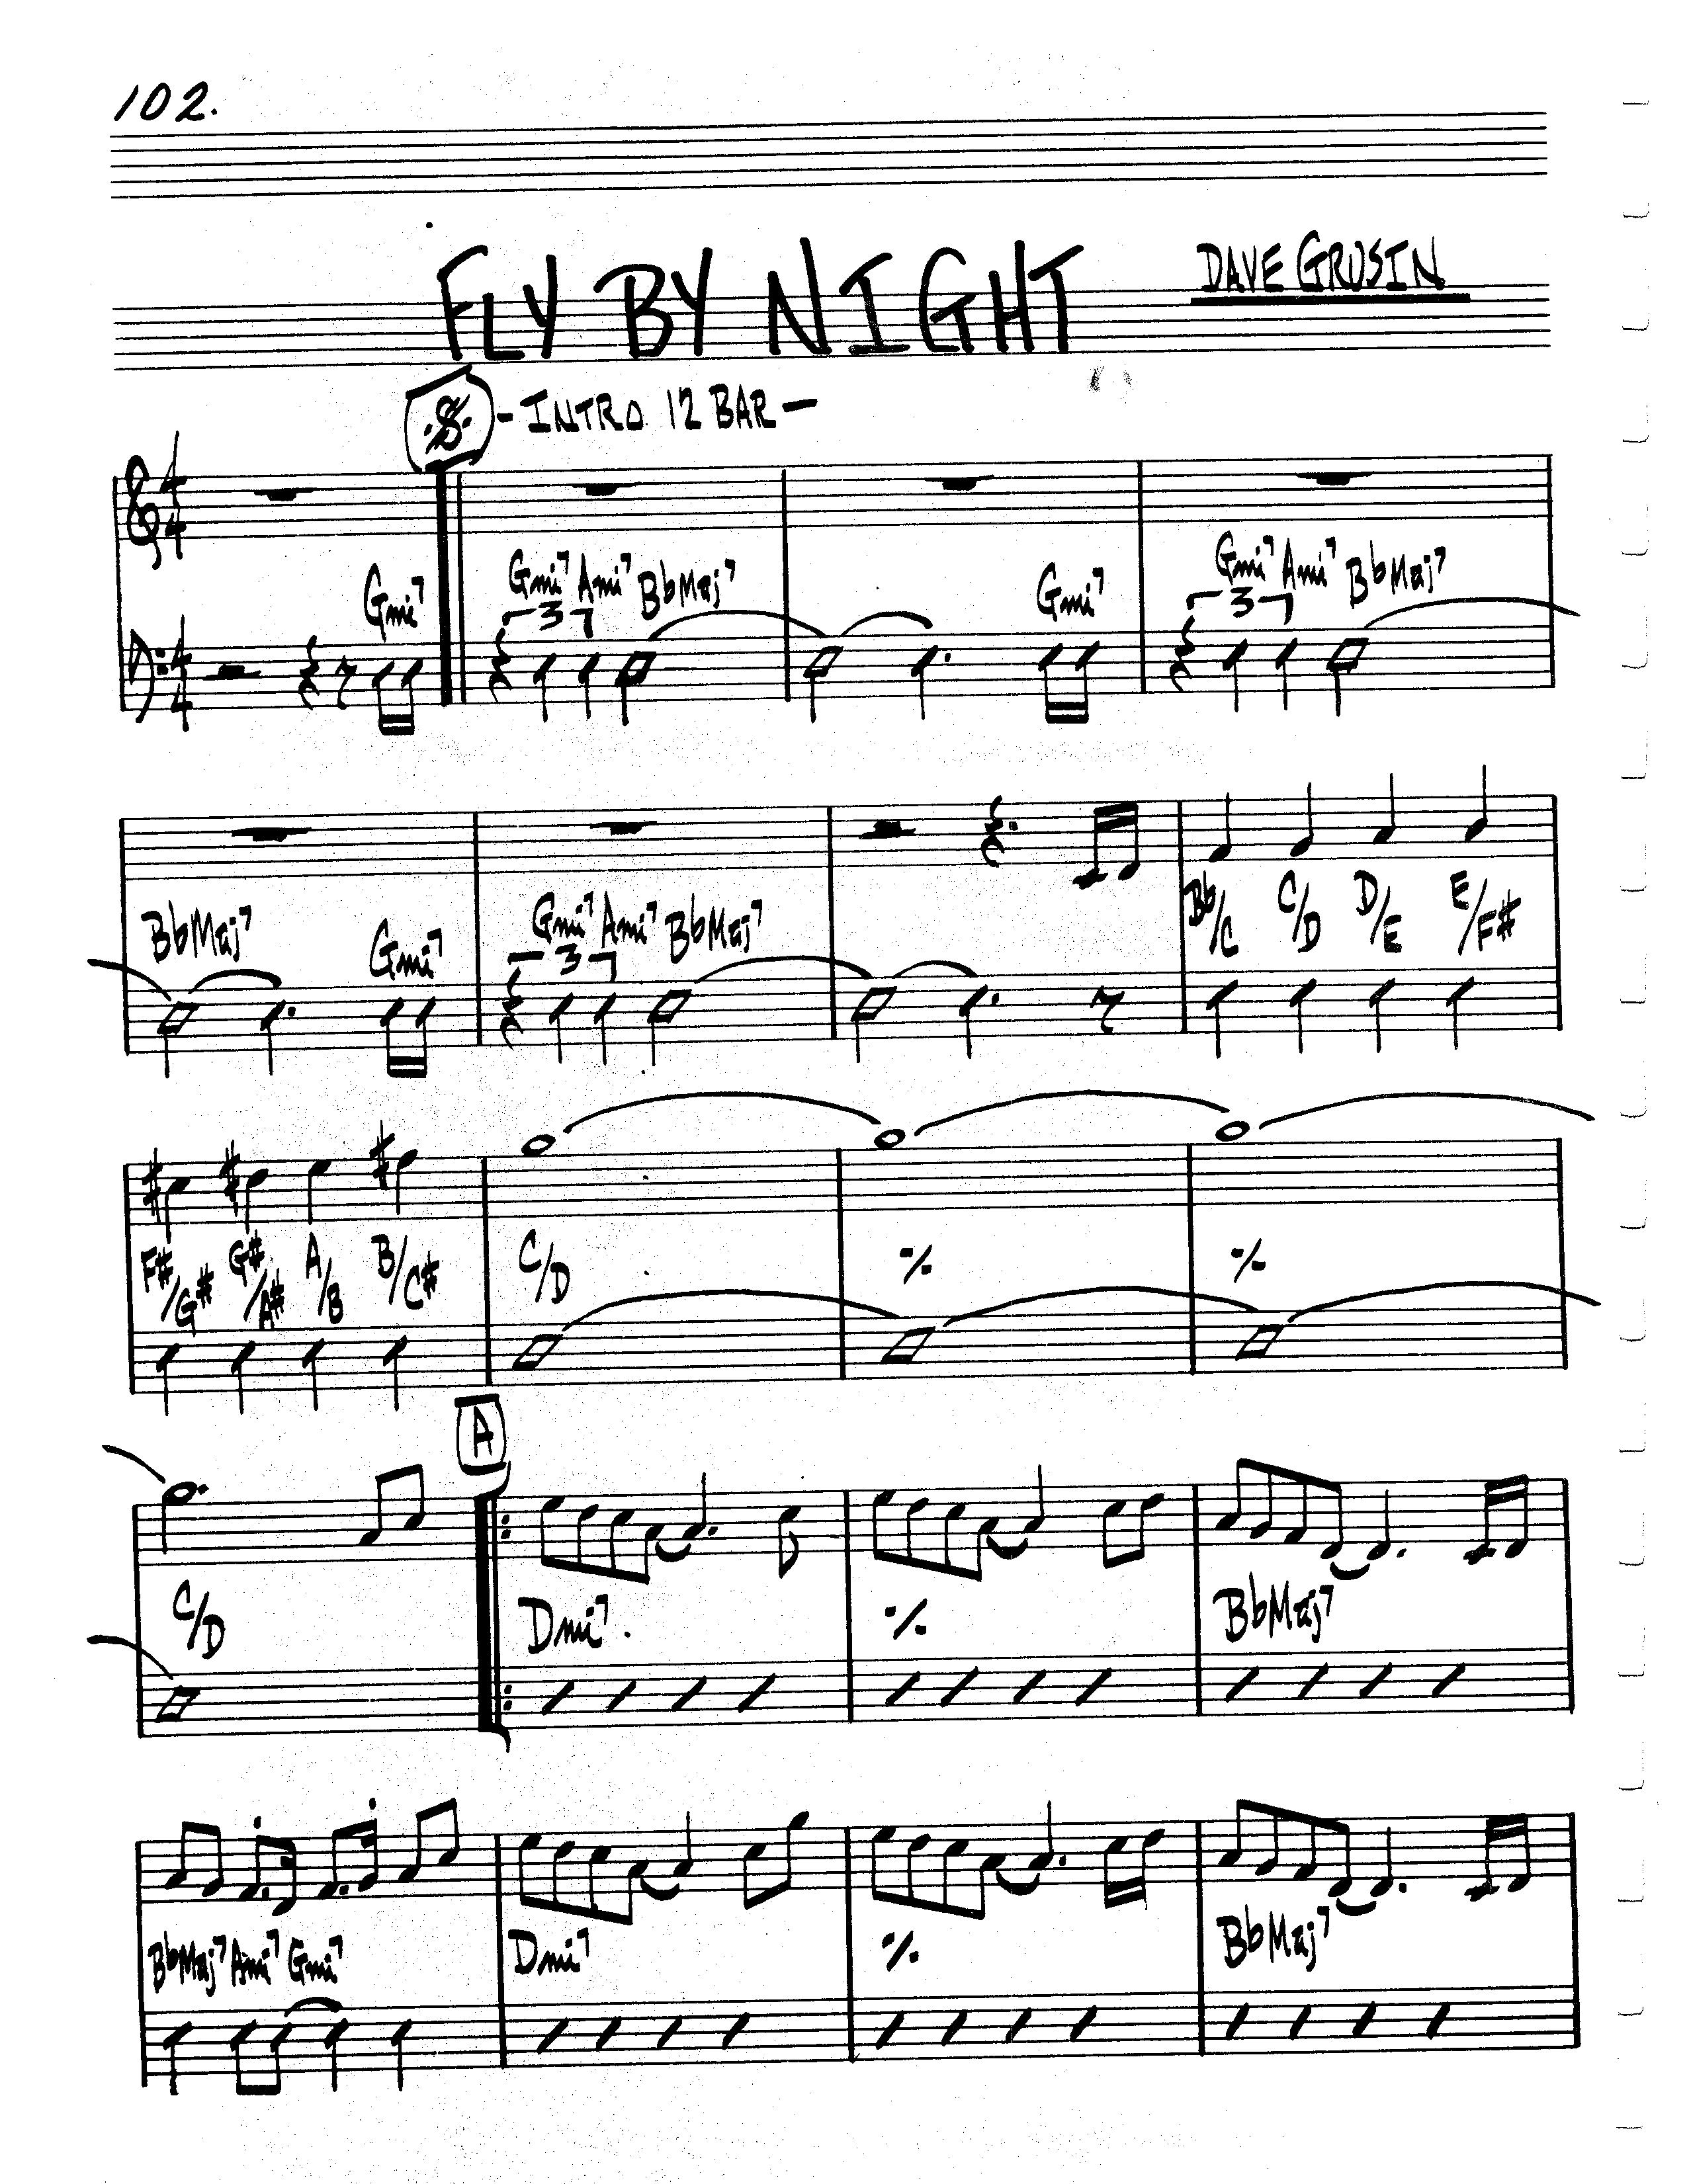 102.
FLY BY NIGHT
DAVE GRUSIN
- INTRO 12 BAR -
4 4
Gmi7 Gmi7 Ami7 BbMaj7 Gmi7 Gmi7 Ami7 BbMaj7
3 3
4 4
BbMaj7 Gmi7 Gmi7 Ami7 BbMaj7 Bb/C C/D D/E E/F#
3
F#/G# G#/A# A/B B/C# C/D
A
C/D Dmi7 BbMaj7
BbMaj7 Ami7 Gmi7 Dmi7 BbMaj7